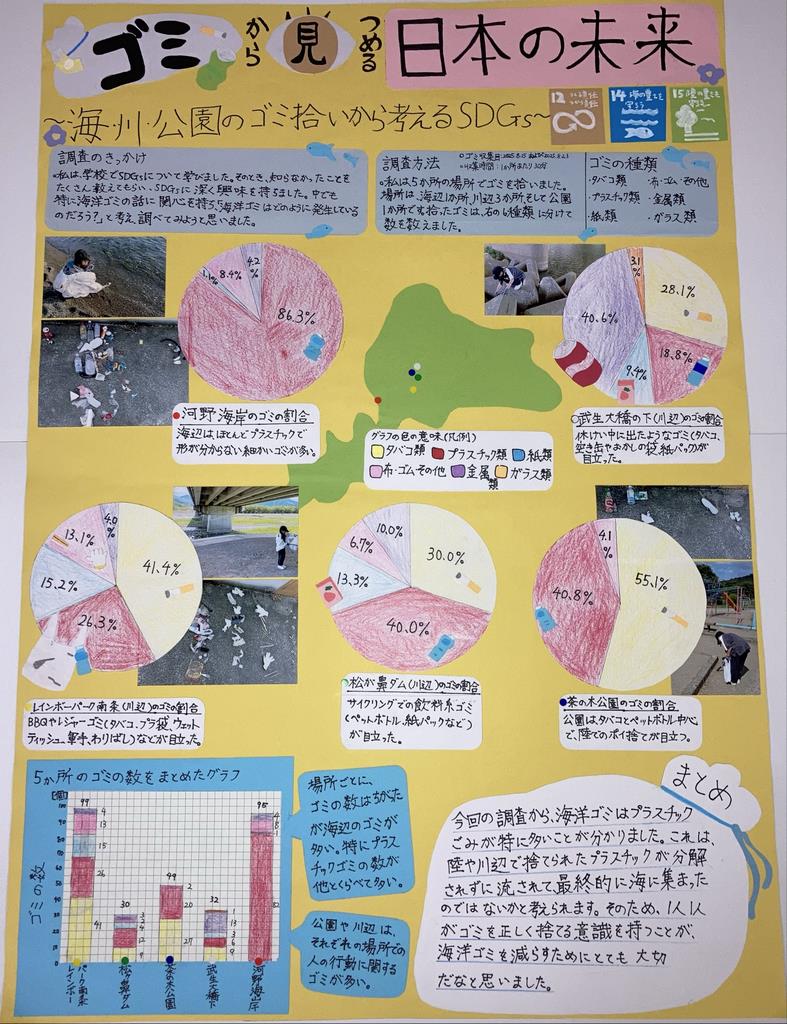 ゴミから見つめる日本の未来
～海・川・公園のゴミ拾いから考えるSDGs～
12 つくる責任
つかう責任
14 海の豊かさを
守ろう
15 陸の豊かさも
守ろう
調査のきっかけ
・私は、学校でSDGsについて学びました。そのとき、知らなかったことを
たくさん教えてもらい、SDGsに深く興味を持ちました。中でも
特に海洋ゴミの話に関心を持ち、「海洋ゴミはどのように発生している
のだろう?」と考え、調べてみようと思いました。
調査方法
・私は5か所の場所でゴミを拾いました。
場所は、海辺1か所、川辺3か所、そして公園
1か所です。拾ったゴミは、右の6種類に分けて
数を数えました。
ゴミの種類
・タバコ類 ・布・ゴム・その他
・プラスチック類 ・金属類
・紙類 ・ガラス類
86.3%
1.1%
8.4%
4.2%
河野海岸のゴミの割合
海辺は、ほとんどプラスチックで
形が分からない細かいゴミが多い。
28.1%
18.8%
9.4%
40.6%
3.1%
武生大橋の下(川辺)のゴミの割合
休けい中に出たようなゴミ(タバコ、
空き缶やおかしの袋、紙パック)が
目立った。
グラフの色の意味(凡例)
タバコ類 プラスチック類 紙類
布・ゴムその他 金属類 ガラス類
41.4%
26.3%
15.2%
13.1%
4.0%
レインボーパーク南条(川辺)のゴミの割合
BBQやレジャーゴミ(タバコ、プラ袋、ウェット
ティッシュ、軍手、わりばし)などが目立った。
30.0%
40.0%
13.3%
6.7%
10.0%
松が鼻ダム(川辺)のゴミの割合
サイクリングでの飲料系ゴミ
(ペットボトル、紙パックなど)
が目立った。
55.1%
40.8%
4.1%
茶の木公園のゴミの割合
公園は、タバコとペットボトル中心
で、陸でのポイ捨てが目立つ。
5か所のゴミの数をまとめたグラフ
[個]
ゴミの数
99
4
13
15
26
41
30
3
2
4
12
9
49
2
20
27
32
1
13
3
6
9
95
4
8
1
82
レインボーパーク南条
松が鼻ダム
茶の木公園
武生大橋下
河野海岸
場所ごとに、
ゴミの数はちがた
が海辺のゴミが
多い。特にプラス
チックゴミの数が
他とくらべて多い。
公園や川辺は、
それぞれの場所での
人の行動に関する
ゴミが多い。
まとめ
今回の調査から、海洋ゴミはプラスチック
ごみが特に多いことが分かりました。これは、
陸や川辺で捨てられたプラスチックが分解
されずに流されて、最終的に海に集まった
のではないかと考えられます。そのため、1人1人
がゴミを正しく捨てる意識を持つことが、
海洋ゴミを減らすためにとても大切
だなと思いました。